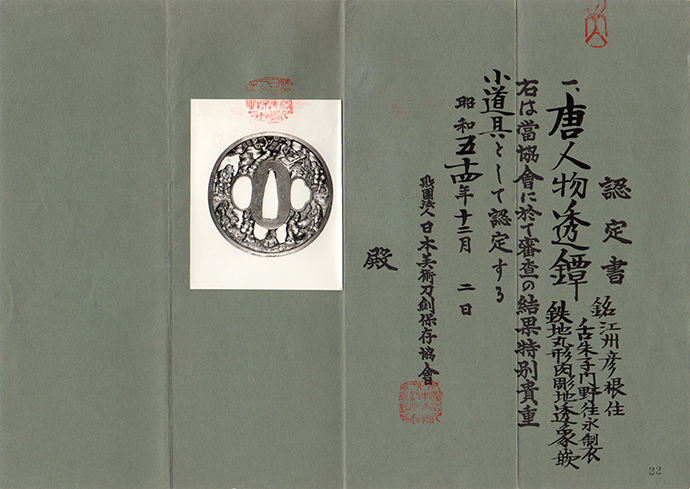 認定書
一、唐人物透鐔
銘 江州彦根住
〆舌朱子門野往永製
鉄地丸形肉彫地透象嵌
右は當協會に於て審査の結果特別貴重
小道具として認定する
昭和五十四年十二月 二日
財團法人日本美術刀劍保存協會
殿
22